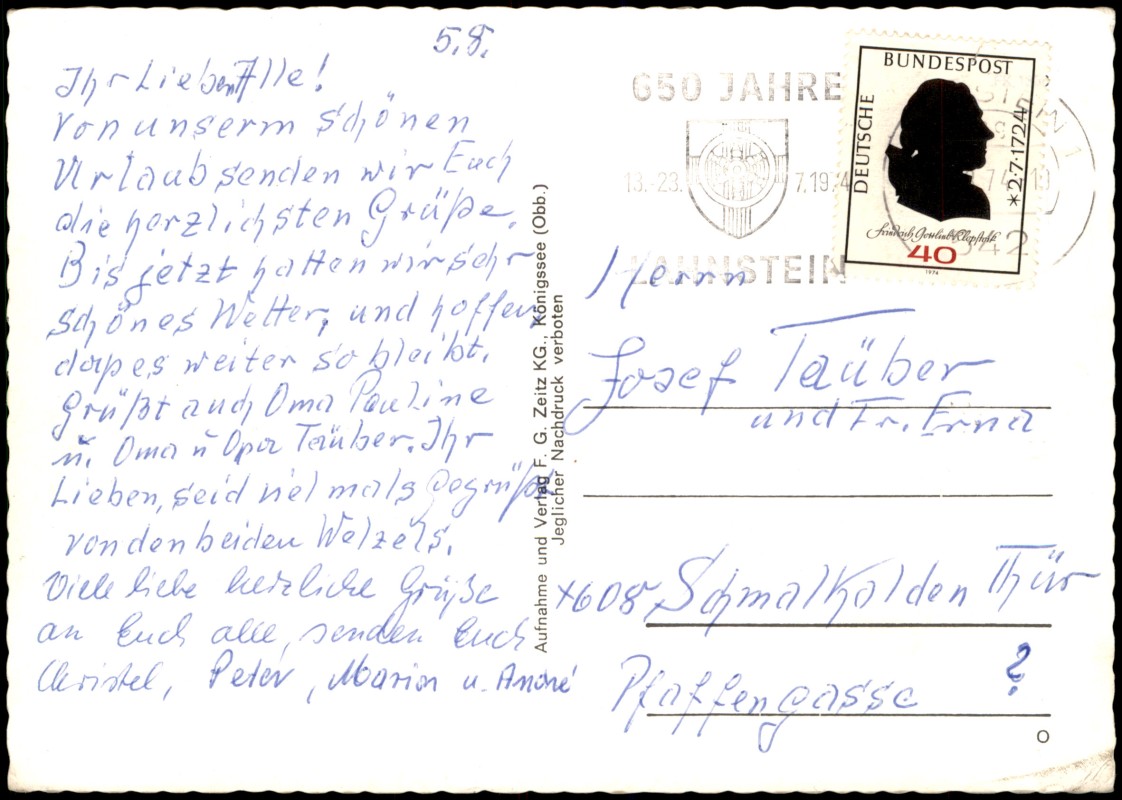 5.8.
Ihr Lieben Alle!
Von unserm schönen
Urlaub senden wir Euch
die herzlichsten Grüße.
Bis jetzt hatten wir sehr
schönes Wetter, und hoffen,
daß es weiter so bleibt.
Grüßt auch Oma Pauline
u. Oma u Opa Täuber. Ihr
Lieben, seid vielmals gegrüßt
von den beiden Welzels.
Viele liebe herzliche Grüße
an Euch alle, senden Euch
Christel, Peter, Marion u. André
Aufnahme und Verlag F. G. Zeitz KG., Königssee (Obb.)
Jeglicher Nachdruck verboten
650 JAHRE
13.-23. 7.1974
LAHNSTEIN
DEUTSCHE
BUNDESPOST
*2·7·1724
Friedrich Gottlieb Klopstock
40
1974
542
Herrn
Josef Täuber
und Fr. Erna
X608 Schmalkalden Thür
Pfaffengasse ?
O